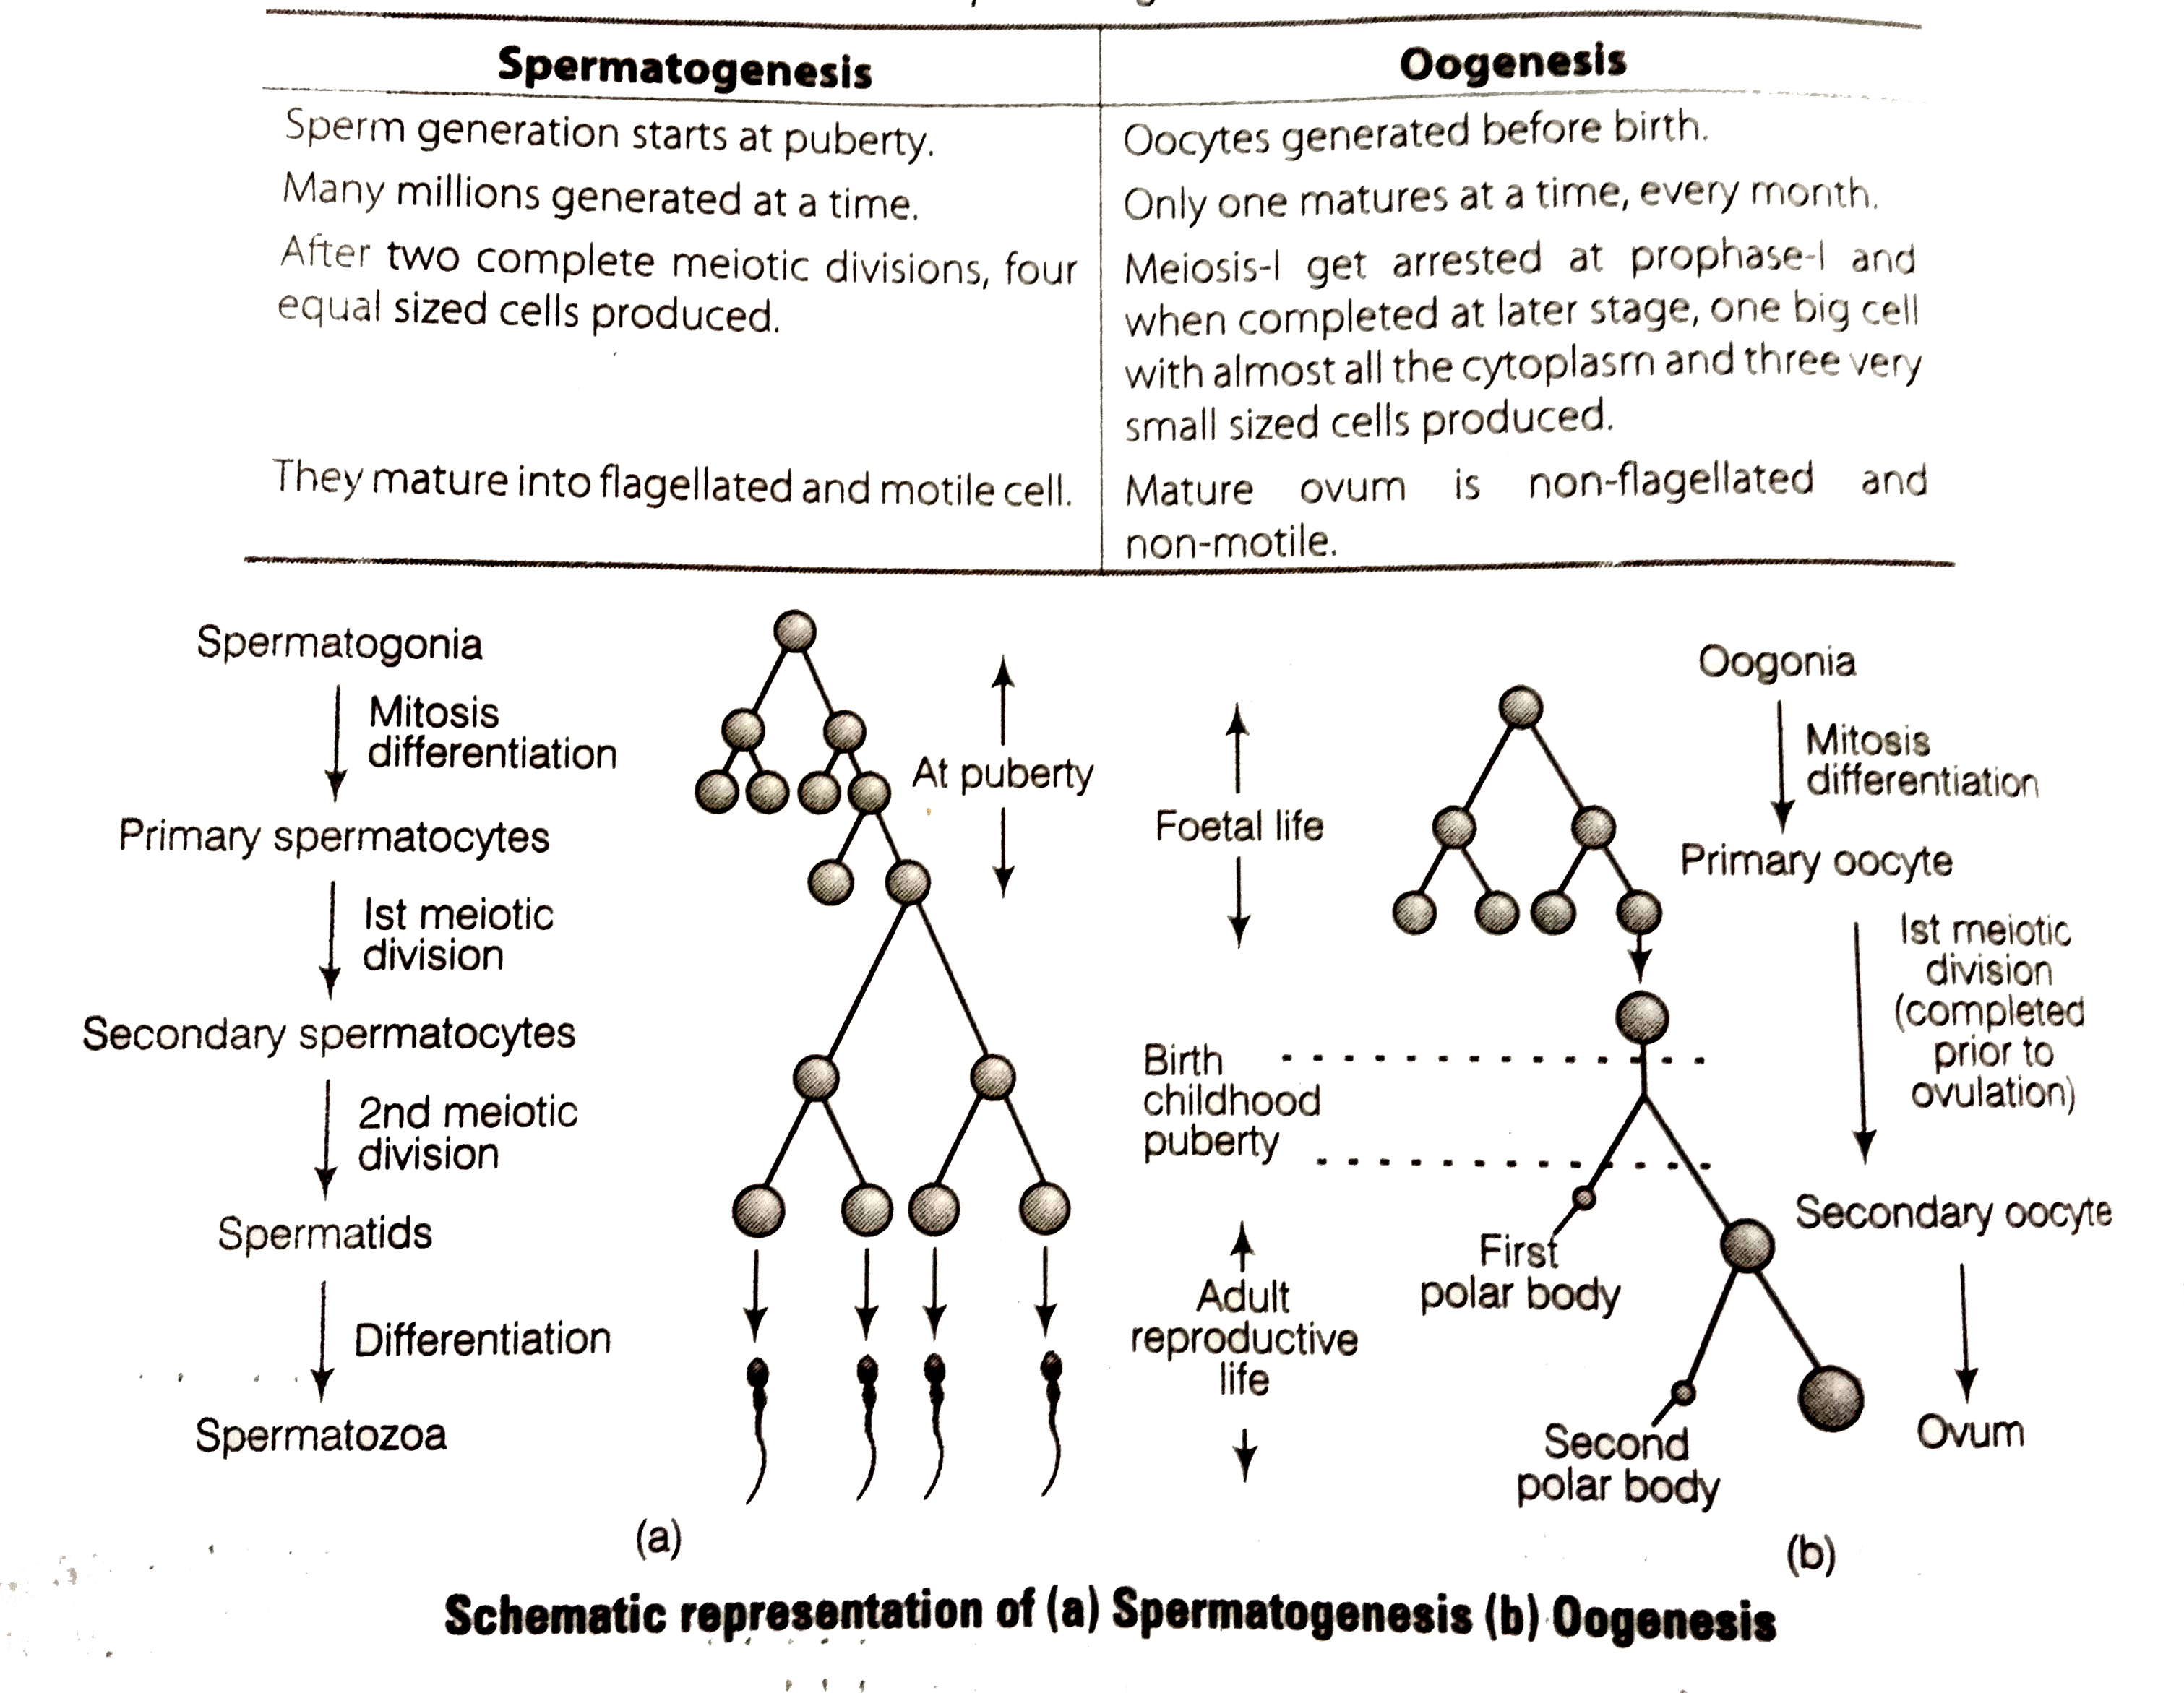 Spermatogenesis
Oogenesis
Sperm generation starts at puberty.
Oocytes generated before birth.
Many millions generated at a time.
Only one matures at a time, every month.
After two complete meiotic divisions, four
equal sized cells produced.
Meiosis-I get arrested at prophase-I and
when completed at later stage, one big cell
with almost all the cytoplasm and three very
small sized cells produced.
They mature into flagellated and motile cell.
Mature ovum is non-flagellated and
non-motile.
Spermatogonia
Mitosis
differentiation
Primary spermatocytes
Ist meiotic
division
Secondary spermatocytes
2nd meiotic
division
Spermatids
Differentiation
Spermatozoa
At puberty
(a)
Foetal life
Birth
childhood
puberty
Adult
reproductive
life
Oogonia
Mitosis
differentiation
Primary oocyte
Ist meiotic
division
(completed
prior to
ovulation)
Secondary oocyte
First
polar body
Second
polar body
Ovum
(b)
Schematic representation of (a) Spermatogenesis (b) Oogenesis